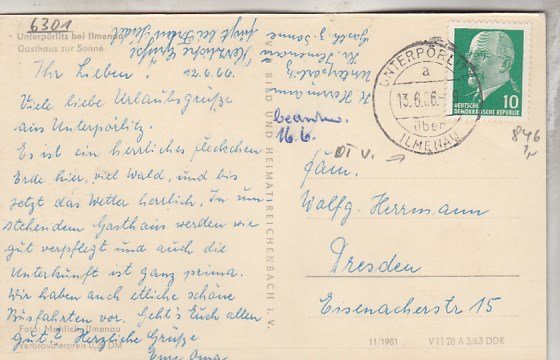 6301
Unterpörlitz bei Ilmenau
Gasthaus zur Sonne
Ihr Lieben! 12.6.66.
Viele liebe Urlaubsgrüße
aus Unterpörlitz.
Es ist ein herrliches Fleckchen
Erde hier, viel Wald, und bis
jetzt das Wetter herrlich. In un-
stehendem Gasthaus werden wir
gut verpflegt und auch die
Unterkunft ist ganz prima.
Wir haben auch etliche schöne
Busfahrten vor. Geht's Euch allen
gut? Herzliche Grüße
Eure Oma
Foto: Mechlich, Ilmenau
Verbraucherpreis 0,20 DM
Herzliche Grüße
H. Herrmann
Unterpörlitz
Kr. Ilmenau
Gasth. z. Sonne
VEB BILD UND HEIMAT REICHENBACH i. V.
beantw.
16.6.
UNTERPÖRLITZ
a
13.6.66
über
ILMENAU
DEUTSCHE
DEMOKRATISCHE REPUBLIK
10
846
OT v.
Fam.
Wolfg. Herrmann
Dresden
Eisenacherstr 15
11/1981 V 11 28 A 3/63 DDR